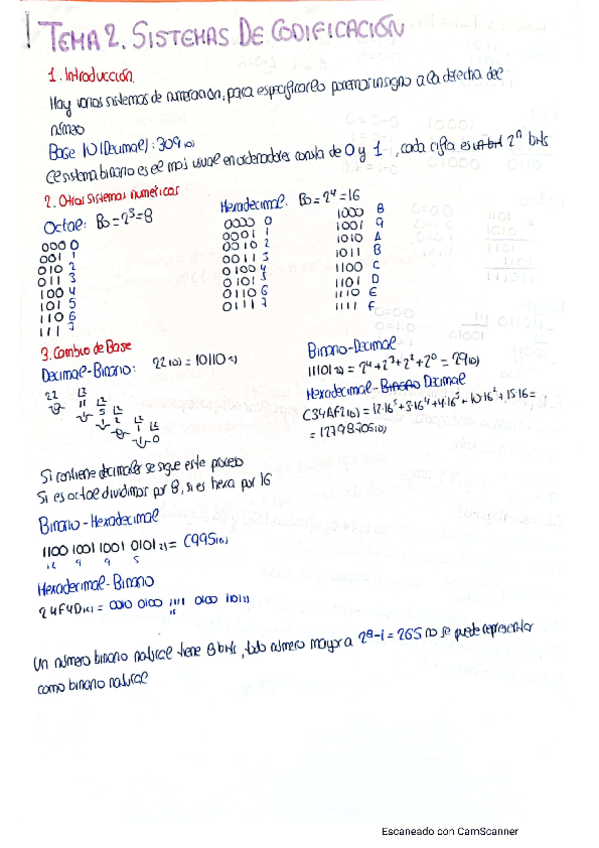 TEMA 2. SISTEMAS DE CODIFICACIÓN
1. Introducción.
Hay varios sistemas de numeración, para especificarlo ponemos un signo a la derecha del
número
Base 10 (Decimal): 309(10)
El sistema binario es el más usual en ordenadores consta de 0 y 1, cada cifra es 2^n bits
2. Otros sistemas numéricos
Octal: B0=2^3=8
000 0
001 1
010 2
011 3
100 4
101 5
110 6
111 7
Hexadecimal. B0=2^4=16
0000 0
0001 1
0010 2
0011 3
0100 4
0101 5
0110 6
0111 7
1000 8
1001 9
1010 A
1011 B
1100 C
1101 D
1110 E
1111 F
3. Cambio de Base
Decimal-Binario: 22(10) = 10110(2)
22 12
11 12
5 12
2 12
1 12
0
Binario-Decimal
11101(2) = 2^4+2^3+2^2+2^0 = 29(10)
Hexadecimal-Binario Decimal
C34AF2(16)=12·16^5+3·16^4+4·16^3+10·16^2+15·16=
= 12798706(10)
Si contiene decimales se sigue este proceso
Si es octal dividimos por 8, si es hexa por 16
Binario-Hexadecimal
1100 1001 1001 0101(2) = C995(16)
12 9 9 5
Hexadecimal-Binario
24F4D(16) = 0010 0100 1111 0100 1101(2)
15
Un número binario natural tiene 8 bits, todo número mayor a 2^8-1=265 no se puede representar
como binario natural
Escaneado con CamScanner